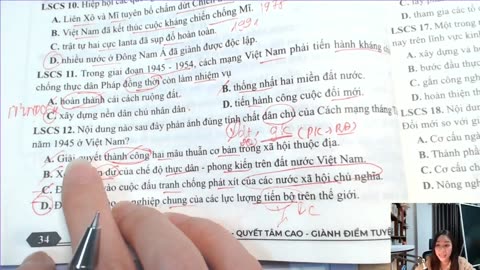 LSCS 10. Hiệp hội các quốc
A. Liên Xô và Mĩ tuyên bố chấm dứt Chiến
B. Việt Nam đã kết thúc cuộc kháng chiến chống Mĩ. 1975
C. trật tự hai cực Ianta đã sụp đổ hoàn toàn. 1991
D. nhiều nước ở Đông Nam Á đã giành được độc lập.
LSCS 11. Trong giai đoạn 1945 - 1954, cách mạng Việt Nam phải tiến hành kháng
chống thực dân Pháp đồng thời còn làm nhiệm vụ
A. hoàn thành cải cách ruộng đất. B. thống nhất hai miền đất nước.
C. xây dựng nền dân chủ nhân dân. D. tiến hành công cuộc đổi mới.
LSCS 12. Nội dung nào sau đây phản ánh đúng tính chất dân chủ của Cách mạng tháng
năm 1945 ở Việt Nam?
A. Giải quyết thành công hai mâu thuẫn cơ bản trong xã hội thuộc địa.
B. dư của chế độ thực dân - phong kiến trên đất nước Việt Nam.
C. vào cuộc đấu tranh chống phát xít của các nước xã hội chủ nghĩa.
D. nghiệp chung của các lực lượng tiến bộ trên thế giới.
34
- QUYẾT TÂM CAO - GIÀNH ĐIỂM TUYỆ
D. tham gia các tổ c
LSCS 17. Một trong
nay trên lĩnh vực kinh
A. xây dựng và h
B. bước đầu thực
C. gắn công nghi
D. hoàn thành th
LSCS 18. Nội dung
Đổi mới so với giai đ
A. Cơ cấu ngà
B. Thành phầ
C. Cơ cấu lã
D. Nông ng